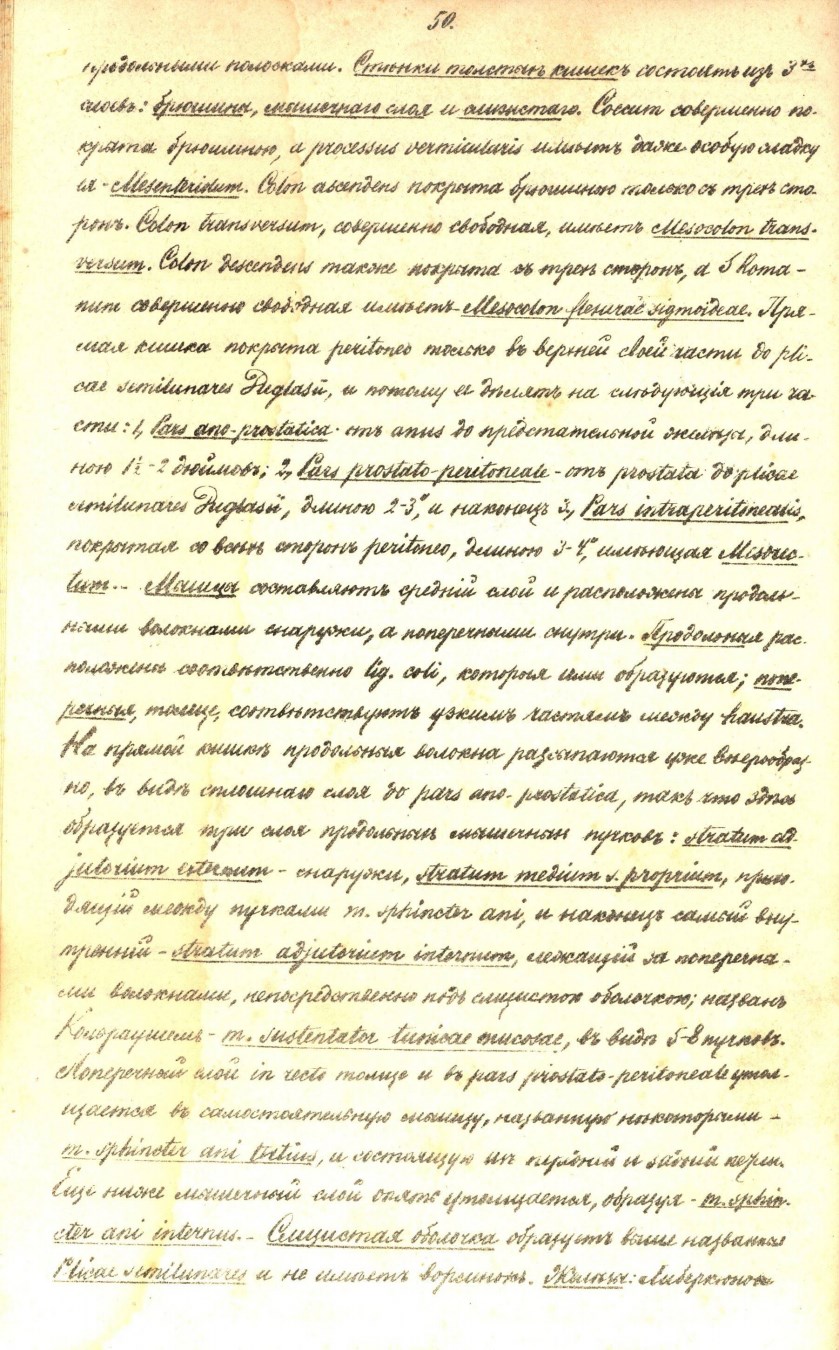 50.
продольными полосками. Стѣнки толстыхъ кишекъ состоятъ изъ 3хъ
слоевъ: брюшина, мышечнаго слоя и слизистаго. Coecum совершенно по-
крыта брюшиною, а processus vermicularis имѣетъ даже особую складку
ея - Mesenteridum. Colon ascendens покрыта брюшиною только съ трехъ сто-
ронъ. Colon transversum, совершенно свободная, имѣетъ Mesocolon trans-
versum. Colon descendens также покрыта съ трехъ сторонъ, а S Roma-
num совершенно свободная имѣетъ Mesocolon flexurae sigmoideae. Пря-
мая кишка покрыта peritoneo только въ верхней своей части до pli-
cae semilunares Duglasii, и потому ее дѣлятъ на слѣдующія три ча-
сти: 1, Pars ano-prostatica - отъ anus до предстательной железы, дли-
ною 1½-2 дюймовъ; 2, Pars prostato-peritoneale - отъ prostata до plicae
semilunares Duglasii, длиною 2-3", и наконецъ 3, Pars intraperitonealis,
покрытая со всѣхъ сторонъ peritoneo, длиною 3-4", имѣющая Mesorec-
tum. - Мышцы составляютъ средній слой и расположены продоль-
ными волокнами снаружи, а поперечными снутри. Продольныя рас-
положены соотвѣтственно lig. coli, которыя ими образуются; попе-
речныя, толще, соотвѣтствуютъ узкимъ частямъ между haustra.
На прямой кишкѣ продольныя волокна разсыпаются уже вѣерообраз-
но, въ видѣ сплошнаго слоя до pars ano-prostatica, такъ что здѣсь
образуется три слоя продольныхъ мышечныхъ пучковъ: stratum ad-
jutorium externum - снаружи, stratum medium s. proprium, прохо-
дящій между пучками m. sphincter ani, и наконецъ самый вну-
тренній - stratum adjutorium internum, лежащій за поперечны-
ми волокнами, непосредственно подъ слизистою оболочкою; названъ
Кольраушемъ - m. sustentator tunicae mucosae, въ видѣ 5-8 пучковъ.
Поперечный слой in recto толще и въ pars prostato-peritoneale утол-
щается въ самостоятельную мышцу, названную нѣкоторыми -
m. sphincter ani tertius, и состоящую изъ передней и задней
Еще ниже мышечный слой опять утолщается, образуя - m. sphin-
cter ani internus. - Слизистая оболочка образуетъ выше названныя
Plicae semilunares и не имѣетъ ворсинокъ. Железы: Либеркюновы